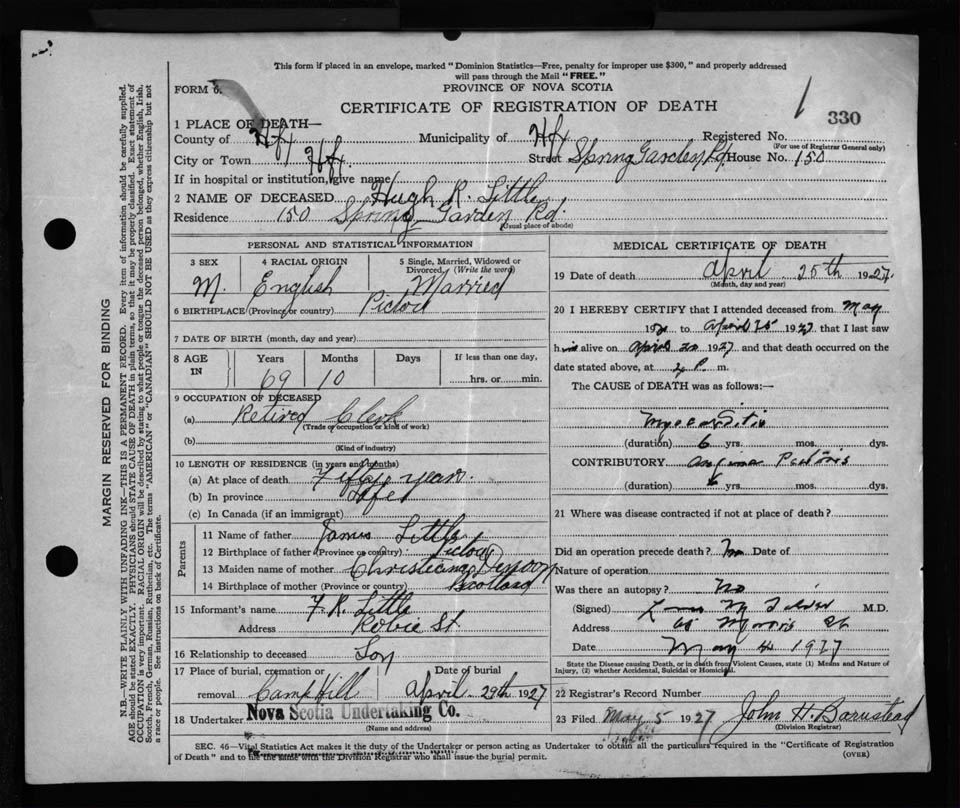 This form if placed in an envelope, marked "Dominion Statistics—Free, penalty for improper use $300," and properly addressed
will pass through the Mail "FREE."
FORM 6.
PROVINCE OF NOVA SCOTIA
CERTIFICATE OF REGISTRATION OF DEATH
1 330
1 PLACE OF DEATH—
County of Hfx Municipality of Hfx Registered No.
(For use of Registrar General only)
City or Town Hfx. Street Spring Garden Rd House No. 150
If in hospital or institution, give name
2 NAME OF DECEASED Hugh R. Little
Residence 150 Spring Garden Rd.
(Usual place of abode)
PERSONAL AND STATISTICAL INFORMATION
3 SEX 4 RACIAL ORIGIN 5 Single, Married, Widowed or Divorced. (Write the word)
M. English Married
6 BIRTHPLACE (Province or country) Pictou
7 DATE OF BIRTH (month, day and year)
8 AGE IN Years Months Days If less than one day,
69 10 hrs. or min.
9 OCCUPATION OF DECEASED
(a) Retired Clerk
(Trade or occupation or kind of work)
(b)
(Kind of industry)
10 LENGTH OF RESIDENCE (in years and months)
(a) At place of death Fifty year.
(b) In province Life
(c) In Canada (if an immigrant)
Parents
11 Name of father James Little
12 Birthplace of father (Province or country) Pictou
13 Maiden name of mother Christiana Denoon
14 Birthplace of mother (Province or country) Scotland
15 Informant's name F. R. Little
Address Robie St.
16 Relationship to deceased Son
17 Place of burial, cremation or removal Camp Hill Date of burial April 29th 1927
18 Undertaker Nova Scotia Undertaking Co.
(Name and address)
MEDICAL CERTIFICATE OF DEATH
19 Date of death April 25th 1927
(Month, day and year)
20 I HEREBY CERTIFY that I attended deceased from May
192 to April 25 1927 that I last saw
h alive on April 1927 and that death occurred on the
date stated above, at P. m.
The CAUSE of DEATH was as follows:—
Myocarditis
(duration) 6 yrs. mos. dys.
CONTRIBUTORY Angina Pectoris
(duration) 6 yrs. mos. dys.
21 Where was disease contracted if not at place of death?
Did an operation precede death? Date of
Nature of operation
Was there an autopsy? No
(Signed) M.D.
Address Morris St
Date May 4 1927
State the Disease causing Death, or in death from Violent Causes, state (1) Means and Nature of
Injury, (2) whether Accidental, Suicidal or Homicidal.
22 Registrar's Record Number
23 Filed May 5 1927 John H. Barnstead
(Division Registrar)
SEC. 46—Vital Statistics Act makes it the duty of the Undertaker or person acting as Undertaker to obtain all the particulars required in the "Certificate of Registration
of Death" and to file the same with the Division Registrar who shall issue the burial permit. (OVER)
MARGIN RESERVED FOR BINDING
N.B.—WRITE PLAINLY WITH UNFADING INK—THIS IS A PERMANENT RECORD. Every item of information should be carefully supplied.
AGE should be stated EXACTLY. PHYSICIANS should STATE CAUSE OF DEATH in plain terms, so that it may be properly classified. Exact statement of
OCCUPATION is very important. RACIAL ORIGIN will be described by stating to what people or tongue the deceased person belonged, whether English, Irish,
Scotch, French, German, Russian, Ruthenian, etc. The terms "AMERICAN" or "CANADIAN" SHOULD NOT BE USED as they express citizenship but not
a race or people. See instructions on back of Certificate.